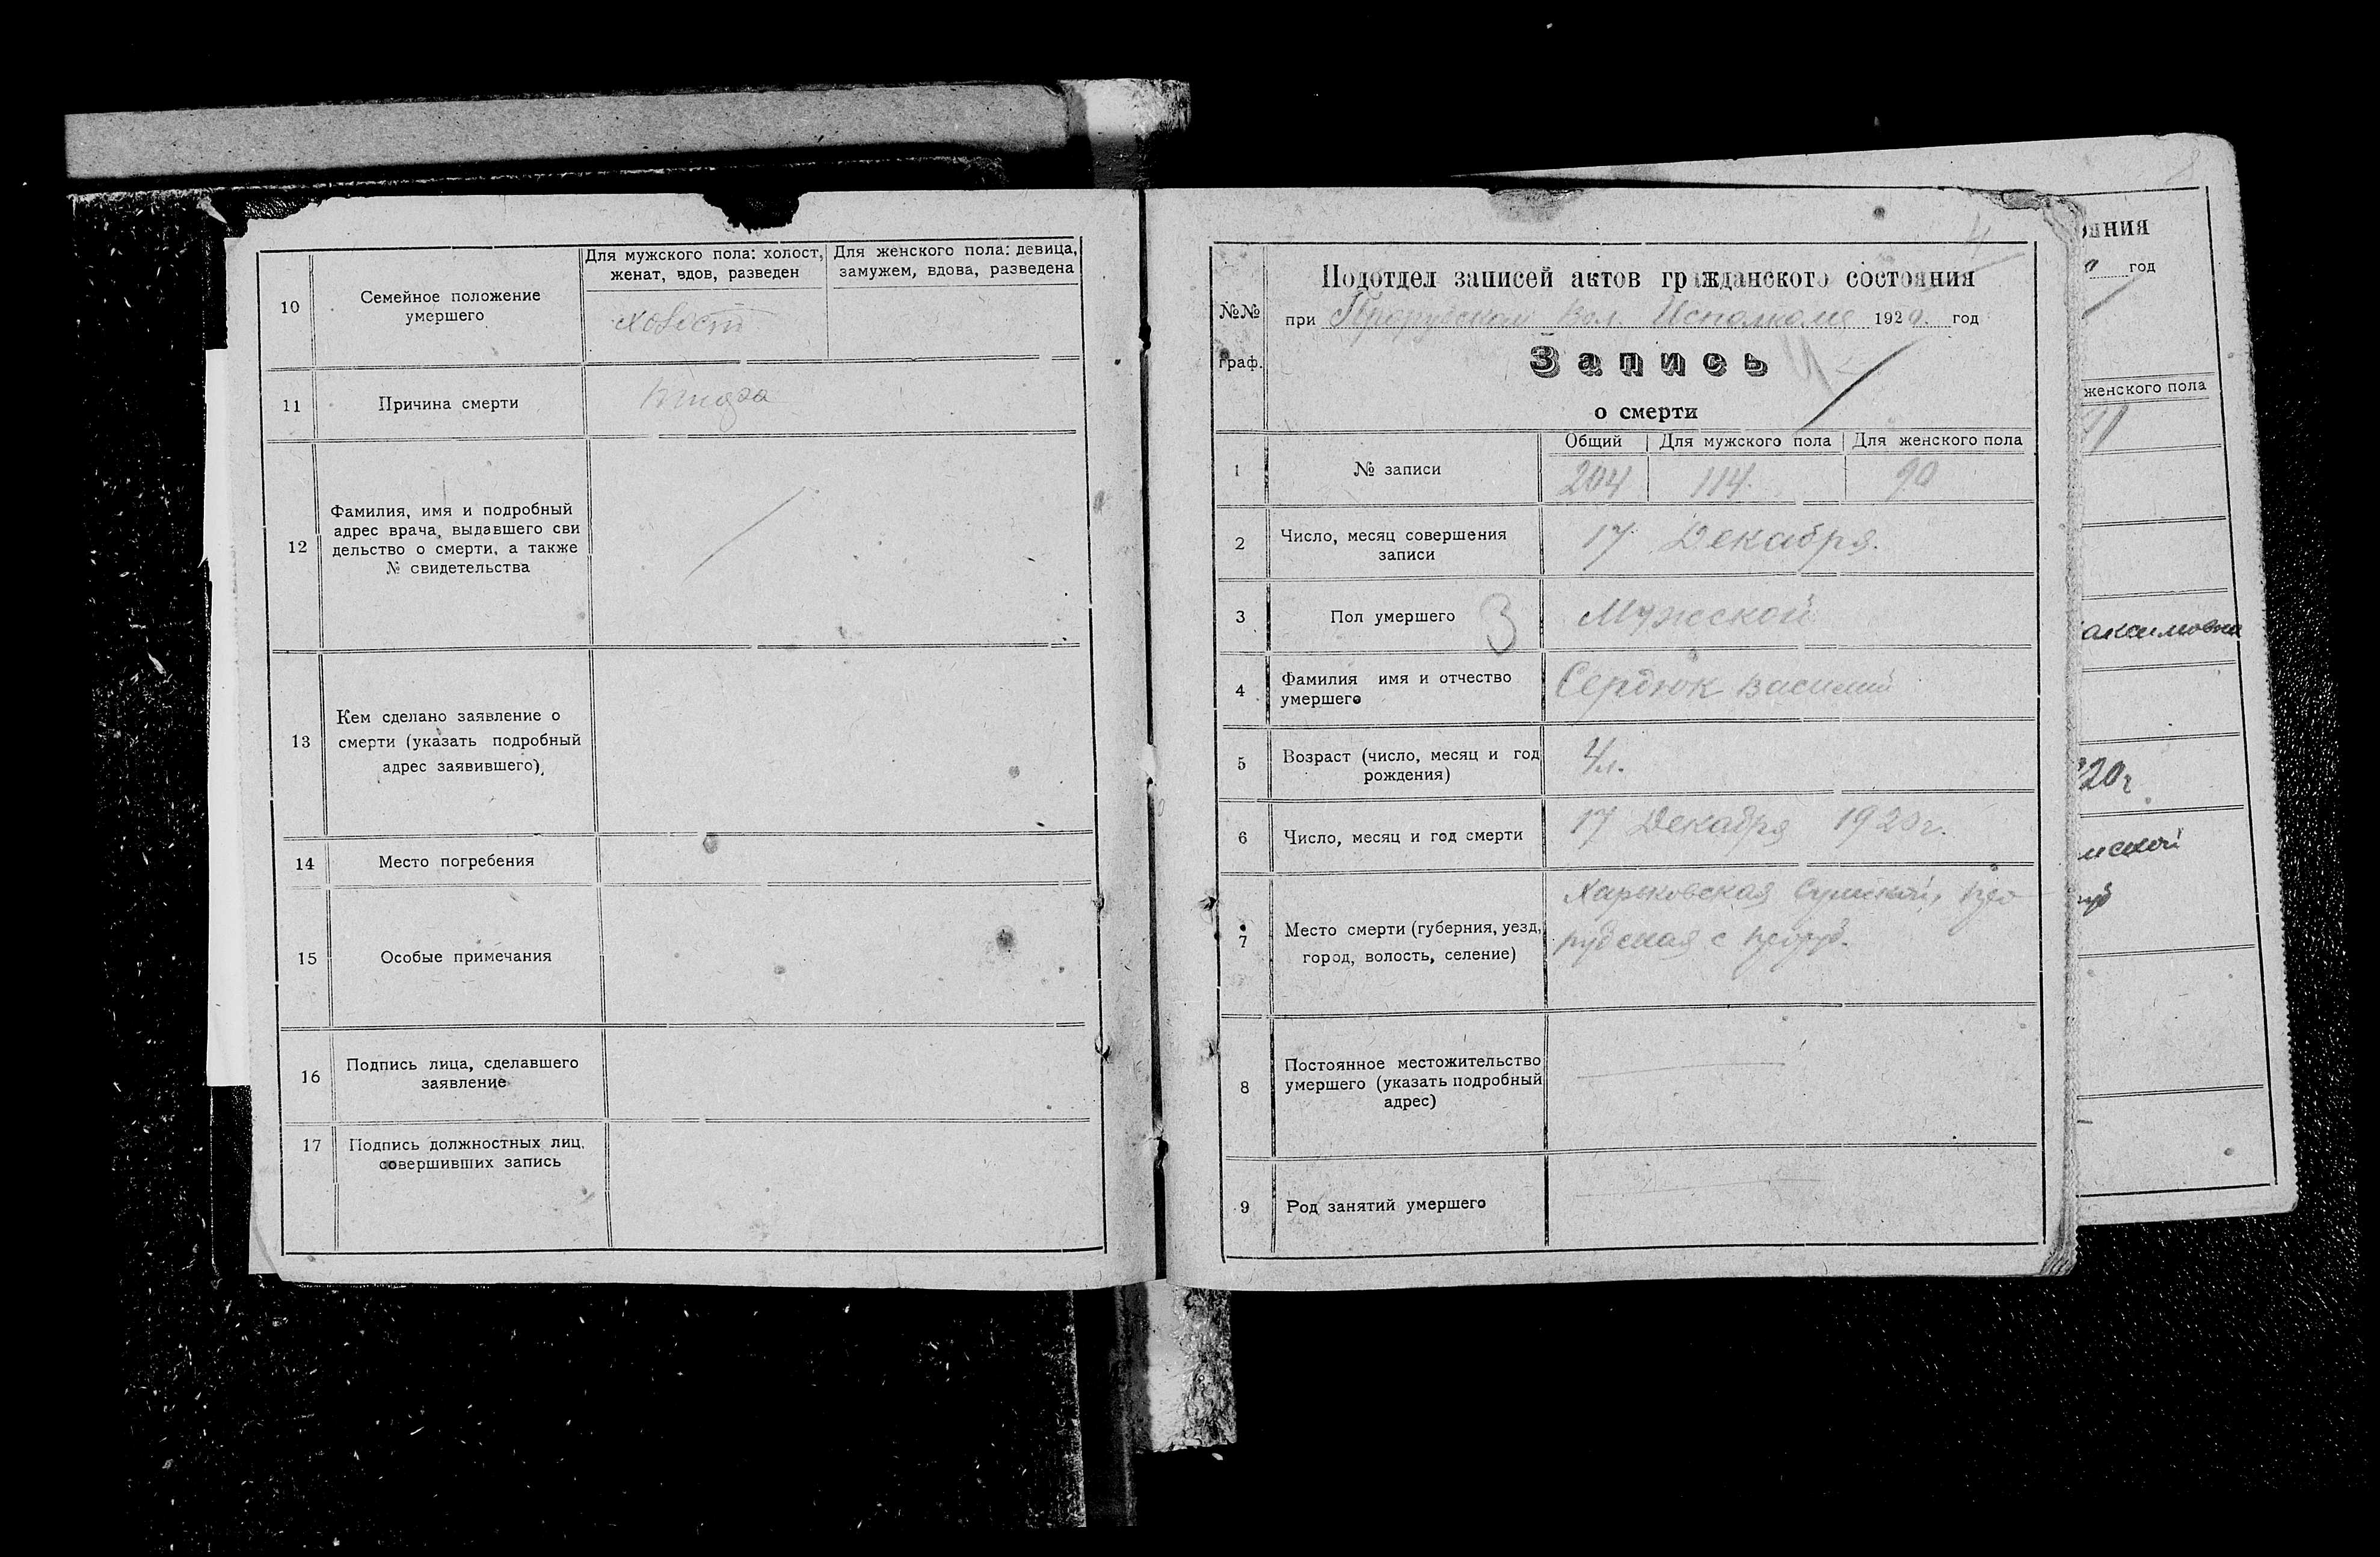 10
Семейное положение
умершего
Для мужского пола: холост,
женат, вдов, разведен
Для женского пола: девица,
замужем, вдова, разведена
холост
11
Причина смерти
12
Фамилия, имя и подробный
адрес врача, выдавшего сви
дельство о смерти, а также
№ свидетельства
13
Кем сделано заявление о
смерти (указать подробный
адрес заявившего)
14
Место погребения
15
Особые примечания
16
Подпись лица, сделавшего
заявление
17
Подпись должностных лиц,
совершивших запись
№№
граф.
Подотдел записей актов гражданского состояния
при Прорубском Вол. Исполкоме 1920. год
Запись
о смерти
1
№ записи
Общий
Для мужского пола
Для женского пола
204
114.
90
2
Число, месяц совершения
записи
17 Декабря.
3
Пол умершего
3
Мужской
4
Фамилия имя и отчество
умершего
Сердюк Василий
5
Возраст (число, месяц и год
рождения)
4 л.
6
Число, месяц и год смерти
17 Декабря 1920 г.
7
Место смерти (губерния, уезд,
город, волость, селение)
Харьковская Сумской, Про
рубская с Проруб.
8
Постоянное местожительство
умершего (указать подробный
адрес)
9
Род занятий умершего
8
ояния
0 год
женского пола
91
аксимовна
920г
мской